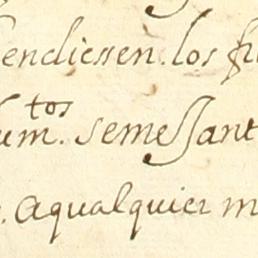 endiessen. los
um.tos semejant
aqualquier m